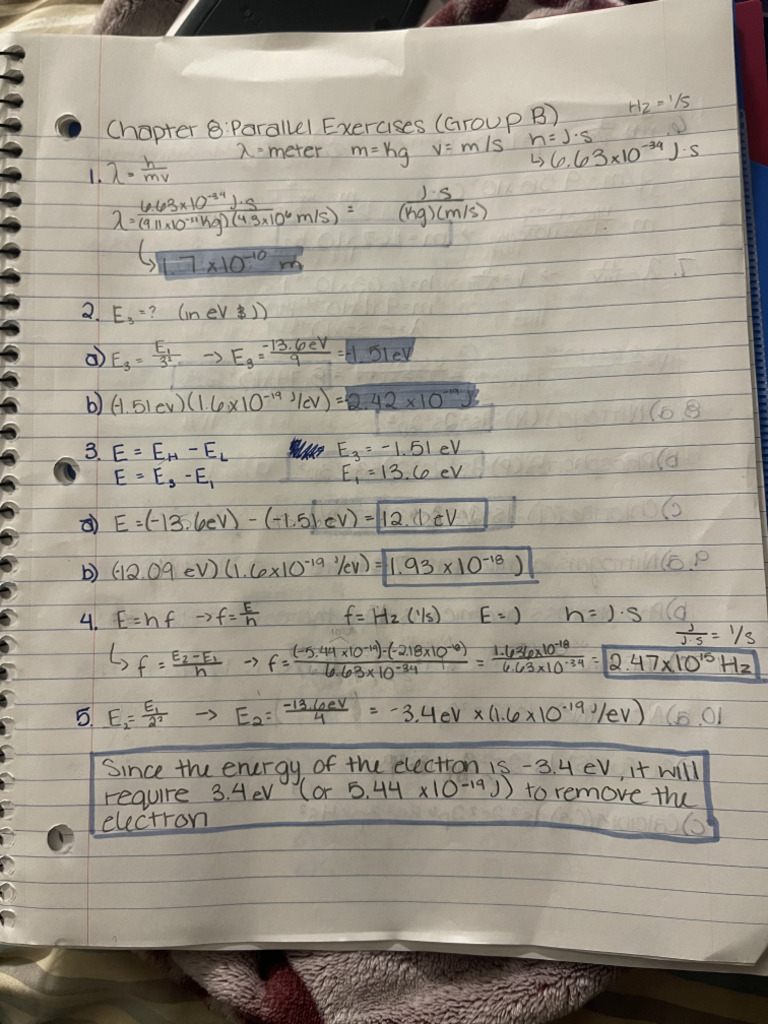 Hz = 1/s
Chapter 8: Parallel Exercises (Group B)
λ = meter m = kg v = m/s h = J·s
↳ 6.63 x 10⁻³⁴ J·s
1. λ = h/mv
λ = 6.63 x 10⁻³⁴ J·s / (9.11 x 10⁻³¹ kg)(4.3 x 10⁶ m/s) = J·s / (kg)(m/s)
↳ 1.7 x 10⁻¹⁰ m
2. E₃ = ? (in eV & J)
a) E₃ = E₁/3² → E₃ = -13.6eV/9 = -1.51 eV
b) (-1.51 eV)(1.6 x 10⁻¹⁹ J/eV) = 2.42 x 10⁻¹⁹ J
3. E = E_H - E_L E₃ = -1.51 eV
E = E₃ - E₁ E₁ = 13.6 eV
a) E = (-13.6eV) - (-1.51 eV) = 12.1 eV
b) (-12.09 eV)(1.6 x 10⁻¹⁹ J/eV) = 1.93 x 10⁻¹⁸ J
4. E = hf → f = E/h f = Hz (1/s) E = J h = J·s
J/J·s = 1/s
↳ f = E₂-E₁/h → f = (-5.44 x 10⁻¹⁹)-(-2.18 x 10⁻¹⁸)/6.63 x 10⁻³⁴ = 1.636 x 10⁻¹⁸/6.63 x 10⁻³⁴ = 2.47 x 10¹⁵ Hz
5. E₂ = E₁/2² → E₂ = -13.6eV/4 = -3.4 eV x (1.6 x 10⁻¹⁹ J/eV)
Since the energy of the electron is -3.4 eV, it will
require 3.4 eV (or 5.44 x 10⁻¹⁹ J) to remove the
electron